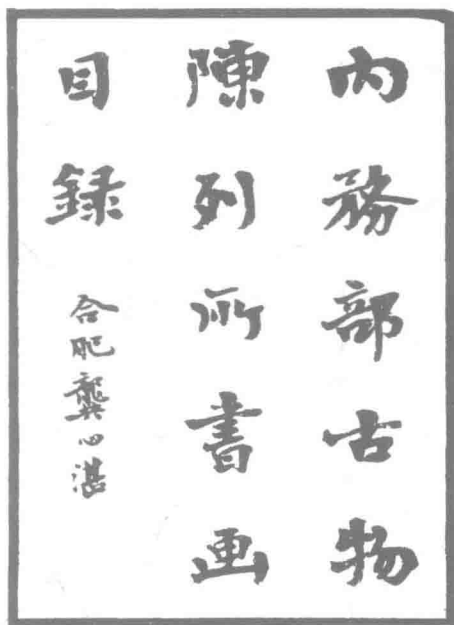 內務部古物
陳列所書画
目録
合肥龔心湛